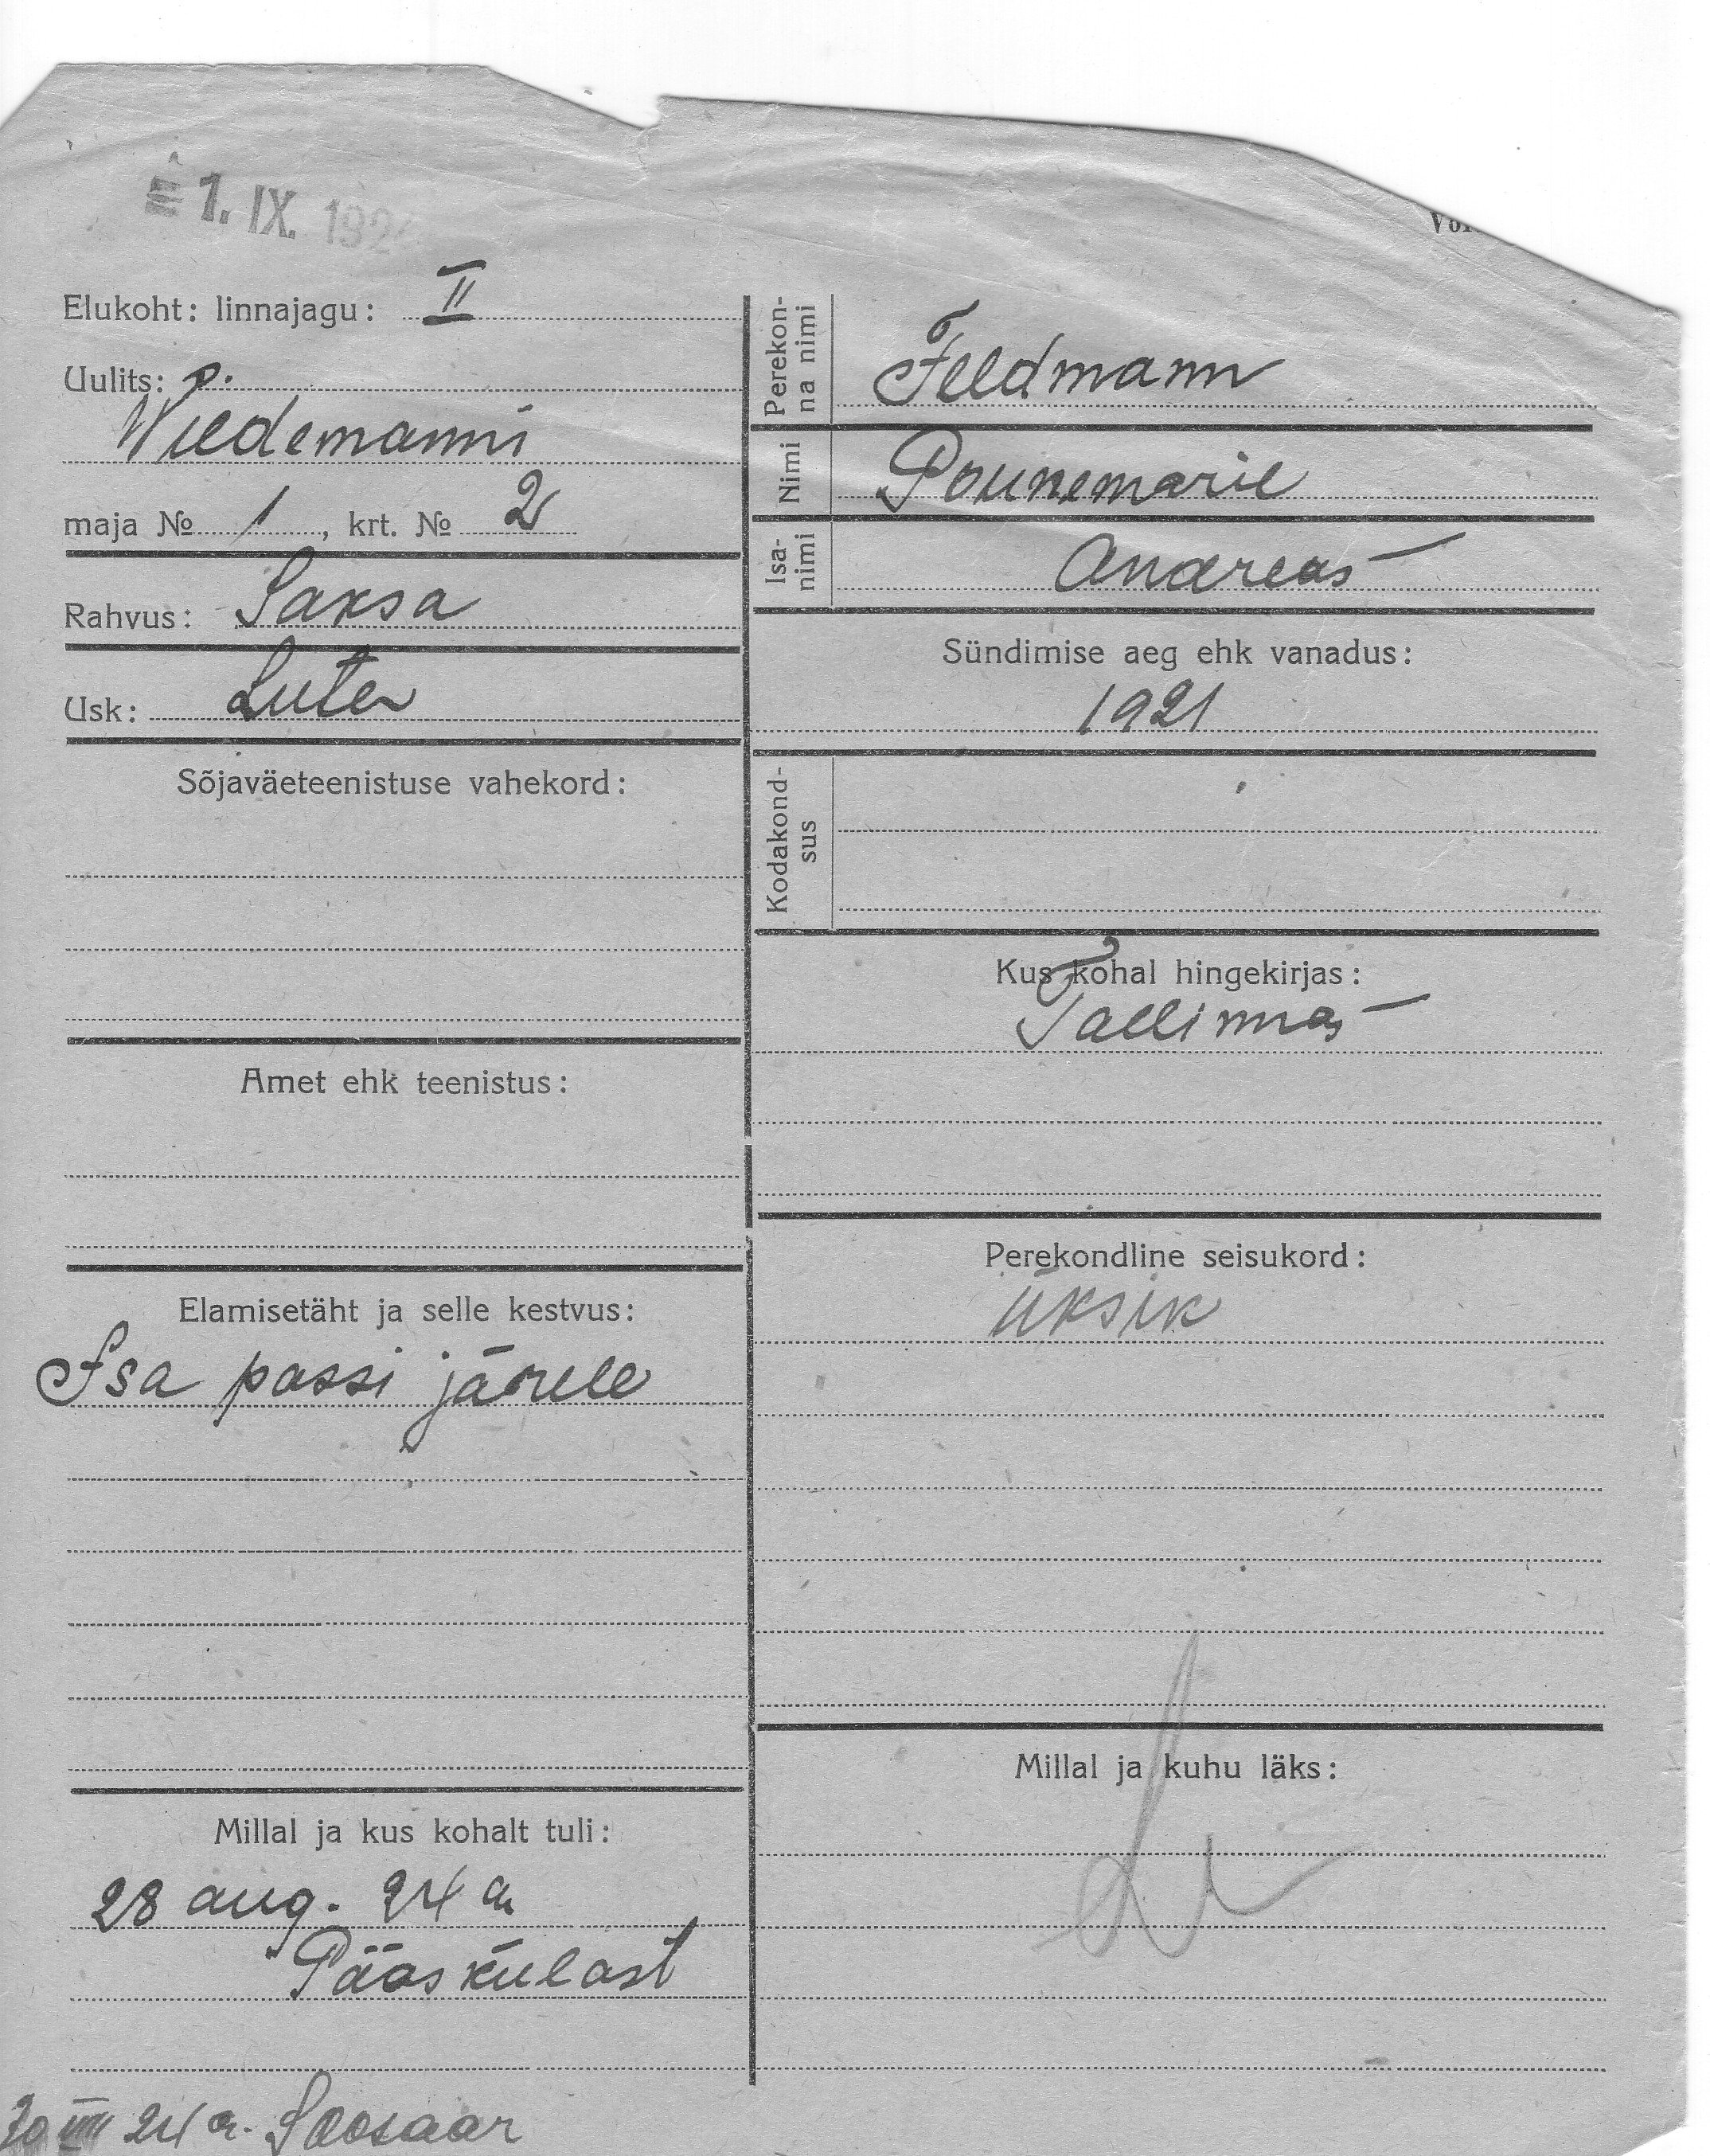 1. IX. 192
Elukoht: linnajagu: II
Uulits: p.
Wiedemanni
maja № 1, krt. № 2
Rahvus: Saksa
Usk: Luter
Sõjaväeteenistuse vahekord:
Amet ehk teenistus:
Elamisetäht ja selle kestvus:
Isa passi järele
Millal ja kus kohalt tuli:
28 aug. 24 a
Pääskülast
30 VIII 24 a. Soosaar
Perekon-
na nimi
Feldmann
Nimi
Isa-
nimi
Andreas
Sündimise aeg ehk vanadus:
1921
Kodakond-
sus
Kus kohal hingekirjas:
Tallinnas
Perekondline seisukord:
üksik
Millal ja kuhu läks: